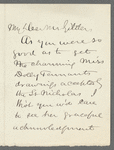 My dear Mr Gilder.
As you were so
good as to get
the charming Miss
Dolly Tennant's
drawings accepted by
the St Nicholas I
think you will like
to see her graceful
acknowledgment.